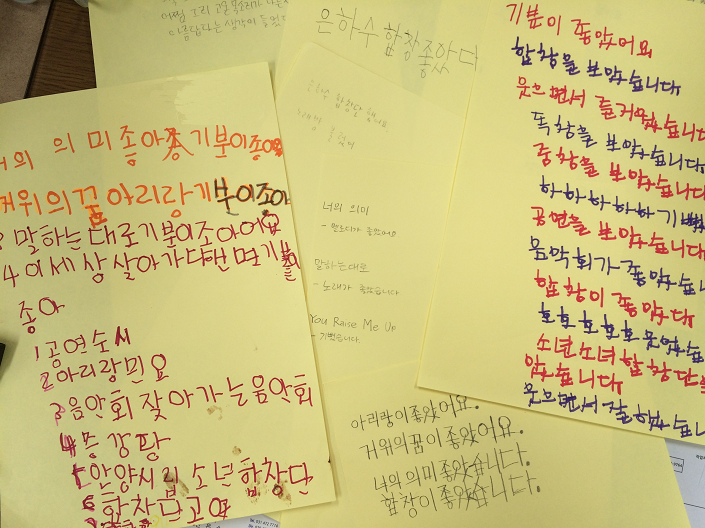 아름답다는 생각이 들었다
은하수 합창 좋았다
너의 의미 좋아 좋 기분이 좋아
거위의 꿈 아리랑 기부이조아
말하는 대로 기분이 조아어요
4 이세상 살아가다 밴면 기분
좋아
1 공연소시
2 아리랑 민요
3 음악회 찾아가는 음악회
4 층 강팡
5 안양시립 소년합창단
6 합차단 고연
너의 의미
말하는대로
- 노래가 좋았습니다
You Raise Me Up
- 기뻤습니다.
아리랑이 좋았어요.
거위의 꿈이 좋았어요.
너의 의미 좋았습니다.
합창이 좋았습니다.
기분이 좋았어요
합창을 보았습니다
웃으면서 즐거웠습니다
독창을 보았습니다
중창을 보았습니다
하하하하하 기뻤
공연을 보았습니다
음악회가 좋았습니
합창이 좋았다
호호호호호 웃었습
소년소녀 합창단을
았습니다
웃으면서 잘했습니